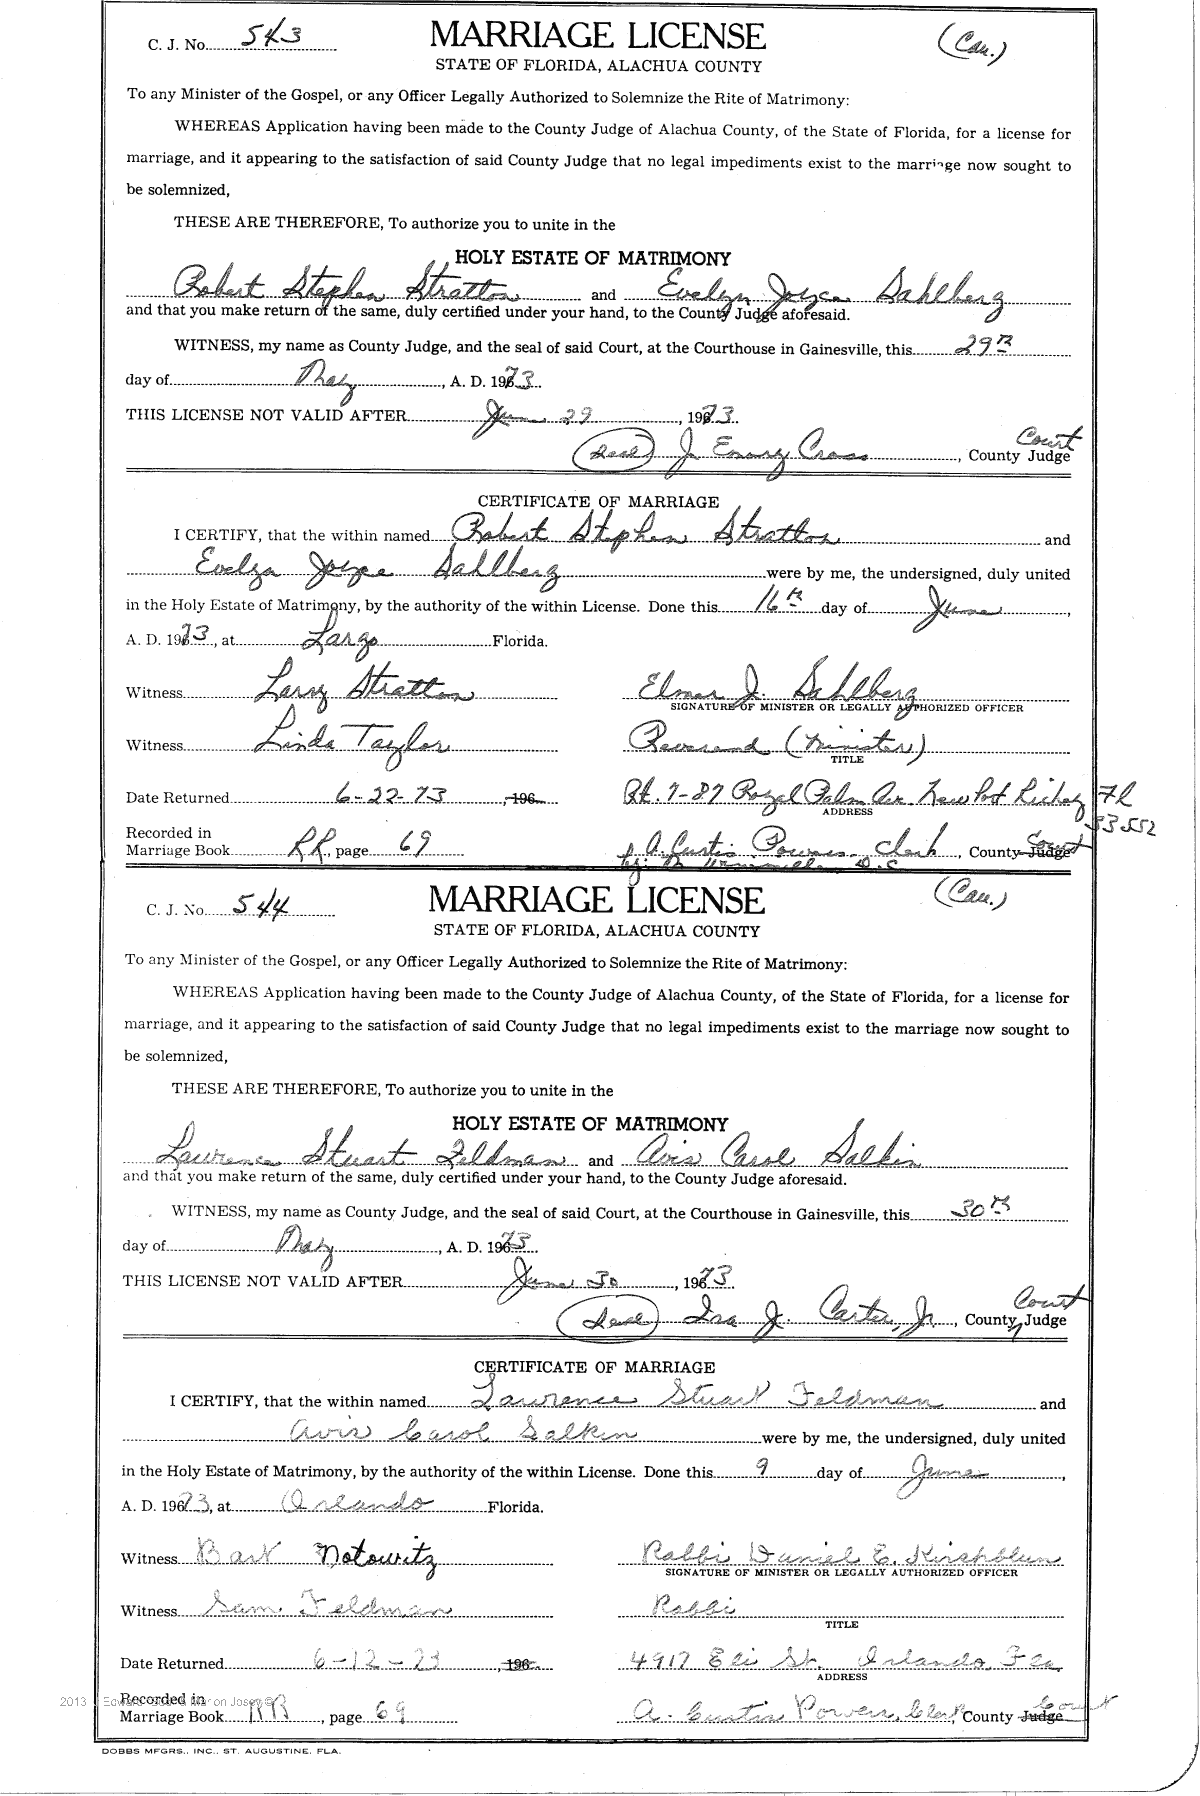 C. J. No. 543 MARRIAGE LICENSE (Cau.)
STATE OF FLORIDA, ALACHUA COUNTY
To any Minister of the Gospel, or any Officer Legally Authorized to Solemnize the Rite of Matrimony:
WHEREAS Application having been made to the County Judge of Alachua County, of the State of Florida, for a license for
marriage, and it appearing to the satisfaction of said County Judge that no legal impediments exist to the marriage now sought to
be solemnized,
THESE ARE THEREFORE, To authorize you to unite in the
HOLY ESTATE OF MATRIMONY
Robert Stephen Stratton and Evelyn Joyce Sahlberg
and that you make return of the same, duly certified under your hand, to the County Judge aforesaid.
WITNESS, my name as County Judge, and the seal of said Court, at the Courthouse in Gainesville, this 29th
day of May, A. D. 1973.
THIS LICENSE NOT VALID AFTER Jun 29, 1973.
(Seal) J. Emory Cross, County Court Judge
CERTIFICATE OF MARRIAGE
I CERTIFY, that the within named Robert Stephen Stratton and
Evelyn Joyce Sahlberg were by me, the undersigned, duly united
in the Holy Estate of Matrimony, by the authority of the within License. Done this 16th day of June,
A. D. 1973, at Largo Florida.
Witness Larry Stratton Elmer J. Sahlberg
SIGNATURE OF MINISTER OR LEGALLY AUTHORIZED OFFICER
Witness Linda Taylor Reverend (Minister)
TITLE
Date Returned 6-22-73, 196 Rt. 7-87 Royal Palm Av. New Port Richey Fl 33552
ADDRESS
Recorded in
Marriage Book RR, page 69 A. Curtis Powers Clerk, County Court Judge
by: D.C.
C. J. No. 544 MARRIAGE LICENSE (Cau.)
STATE OF FLORIDA, ALACHUA COUNTY
To any Minister of the Gospel, or any Officer Legally Authorized to Solemnize the Rite of Matrimony:
WHEREAS Application having been made to the County Judge of Alachua County, of the State of Florida, for a license for
marriage, and it appearing to the satisfaction of said County Judge that no legal impediments exist to the marriage now sought to
be solemnized,
THESE ARE THEREFORE, To authorize you to unite in the
HOLY ESTATE OF MATRIMONY
Lawrence Stuart Feldman and Avis Carol Salkin
and that you make return of the same, duly certified under your hand, to the County Judge aforesaid.
WITNESS, my name as County Judge, and the seal of said Court, at the Courthouse in Gainesville, this 30th
day of May, A. D. 1973.
THIS LICENSE NOT VALID AFTER June 30, 1973.
(Seal) Ira J. Carter, Jr., County Court Judge
CERTIFICATE OF MARRIAGE
I CERTIFY, that the within named Lawrence Stuart Feldman and
Avis Carol Salkin were by me, the undersigned, duly united
in the Holy Estate of Matrimony, by the authority of the within License. Done this 9 day of June,
A. D. 1973, at Orlando Florida.
Witness Bart Notowitz Rabbi Daniel E. Kirshblum
SIGNATURE OF MINISTER OR LEGALLY AUTHORIZED OFFICER
Witness Sam Feldman Rabbi
TITLE
Date Returned 6-12-73, 196 4917 Eli St. Orlando, Fla
ADDRESS
Recorded in
Marriage Book RR, page 69 A. Curtis Powers, Clerk, County Court Judge
2013
DOBBS MFGRS., INC., ST. AUGUSTINE, FLA.